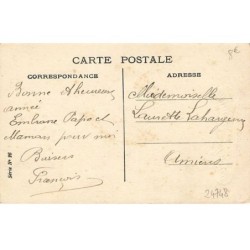 8€
CARTE POSTALE
CORRESPONDANCE
ADRESSE
Bonne & heureuse
année
Embrasse Papa et
Maman pour moi
Baisers
François
Mademoiselle
Amiens
24748
Série N° 92